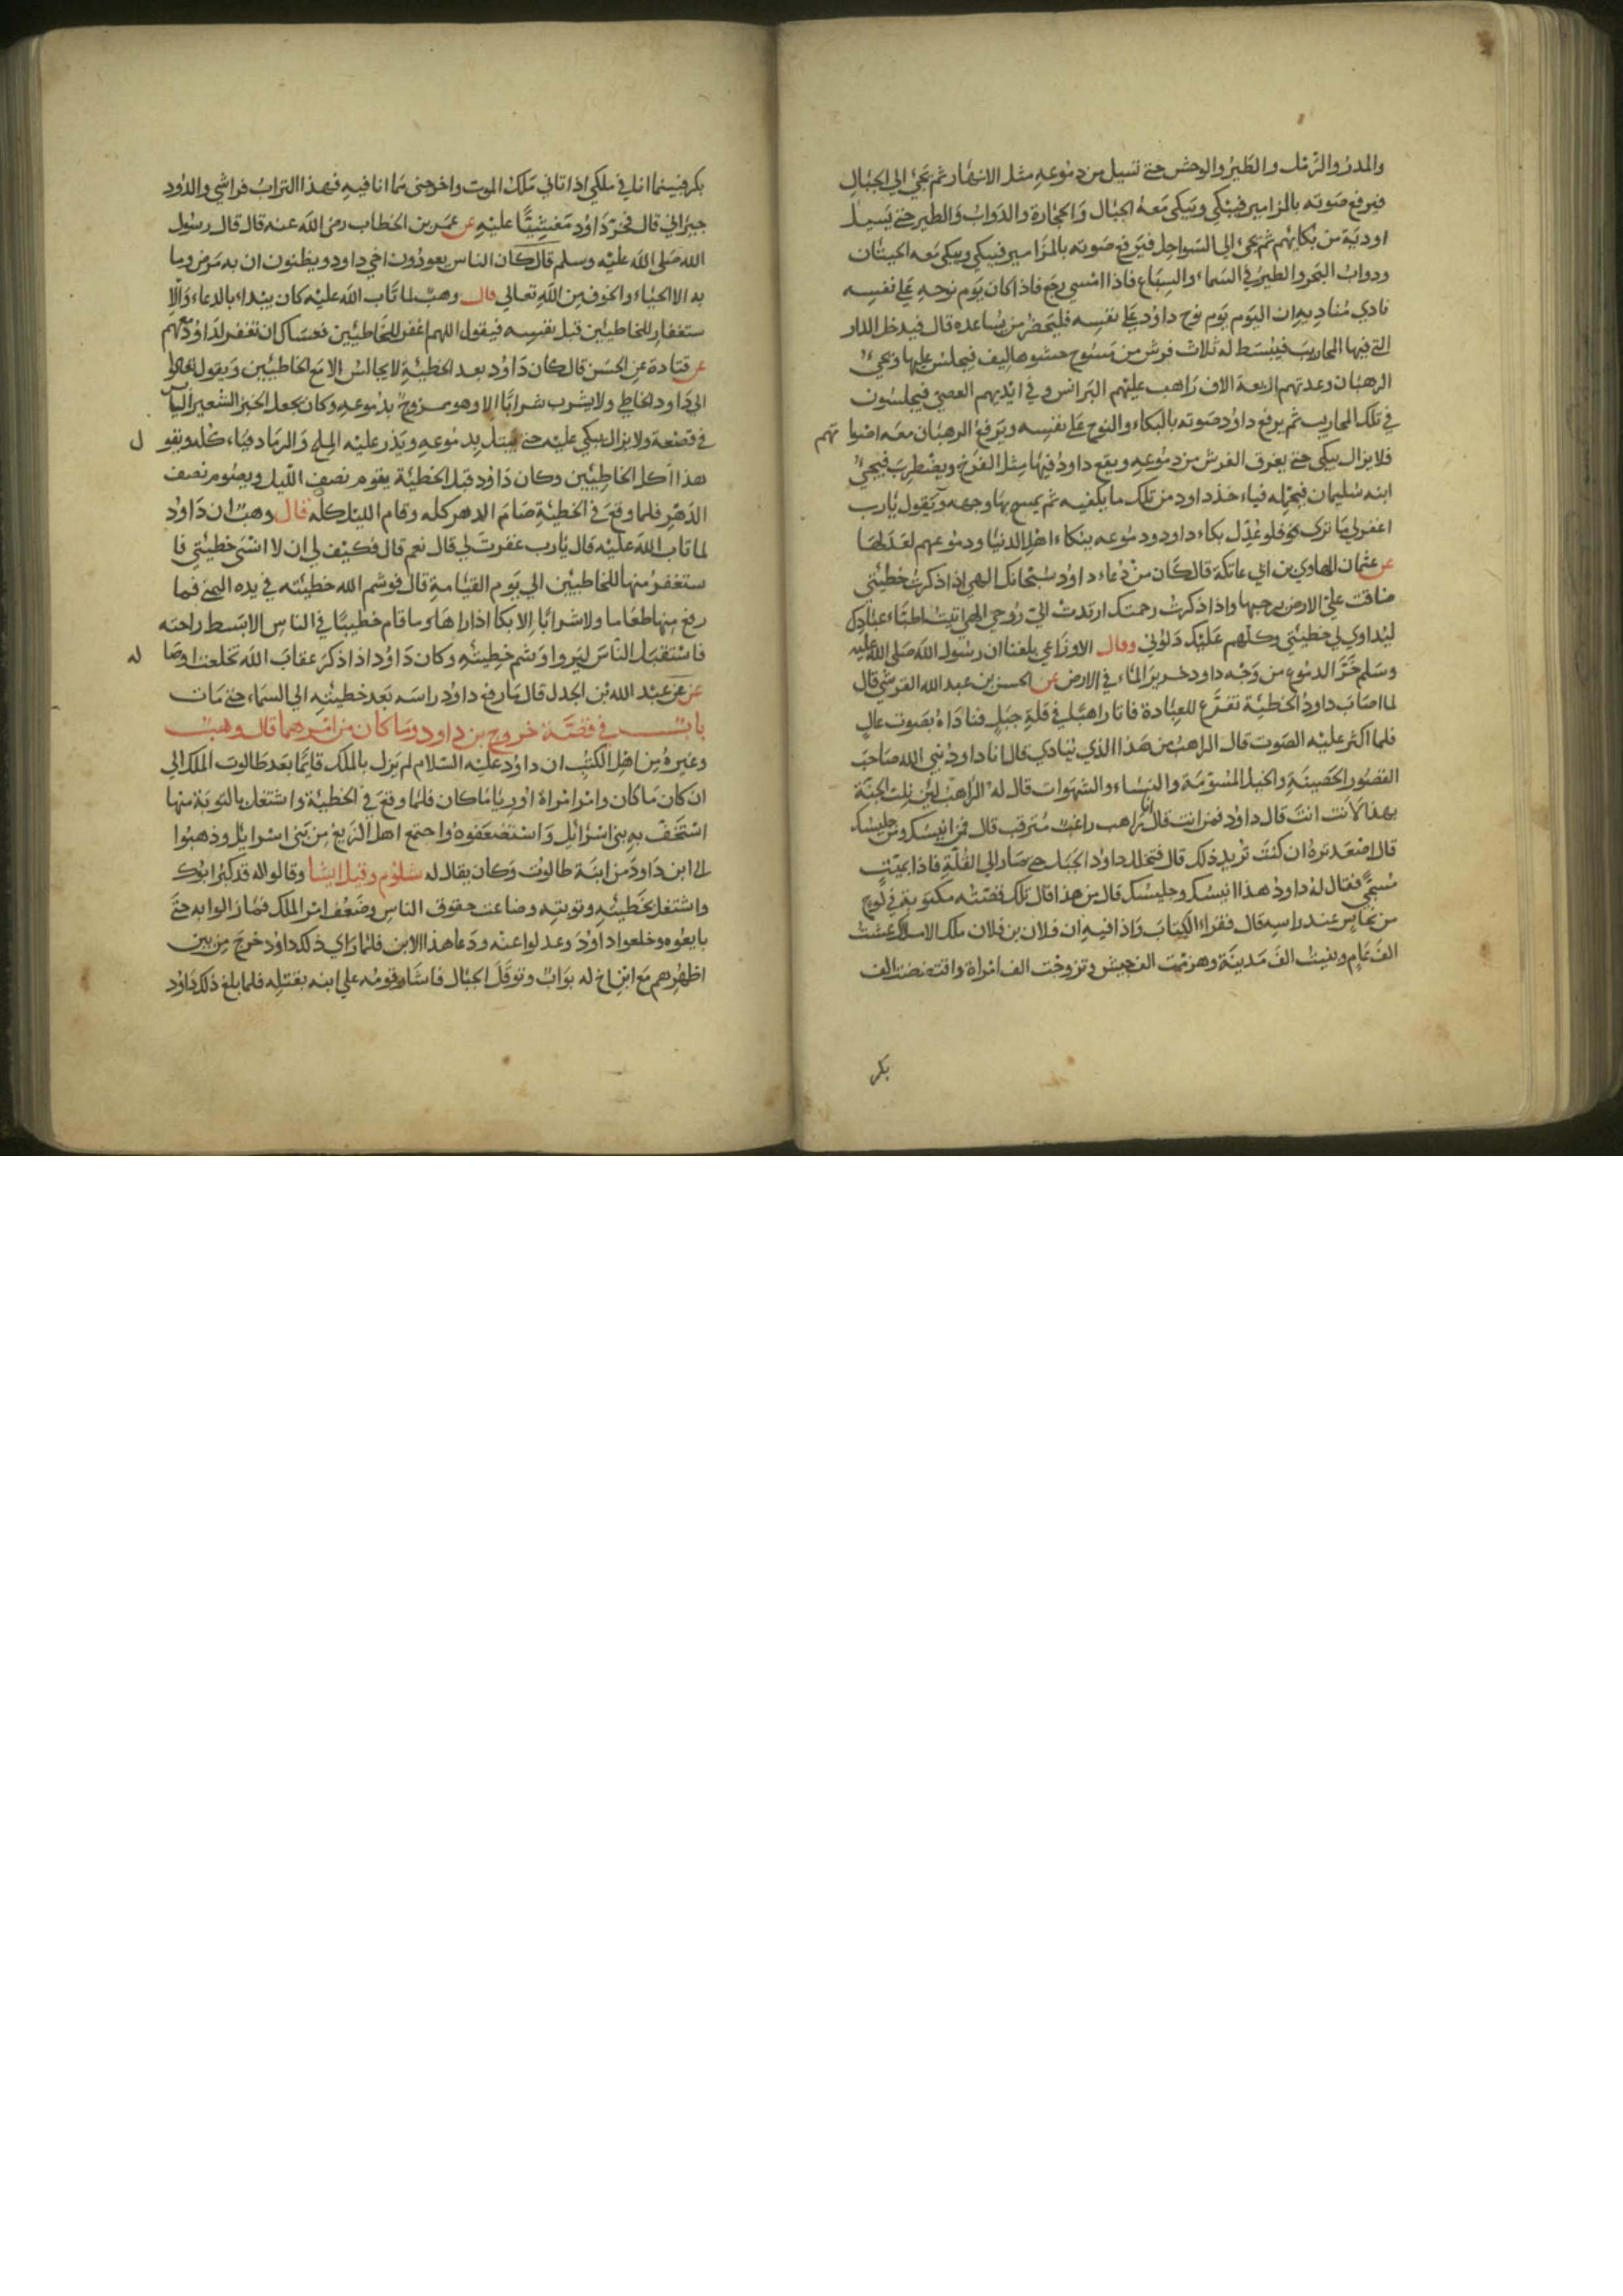 والمدر والرمل والطير والوحش حتي تسيل من دموعه مثل الانهار ثم تجيء الي الجبال
فيرفع صوته بالمزامير فيبكي وتبكي معه الجبال والحجارة والدواب والطير حتي تسيل
اودية من بكائهم ثم يجيء الي السواحل فيرفع صوته بالمزامير فيبكي ويبكي معه الحيتان
ودواب البحر والطير في السماء والسباع فاذا امسي رجع فاذا كان يوم نوحه علي نفسه
نادي مناديه ان اليوم يوم نوح داود علي نفسه فليحضر من يساعده قال فيدخل الدار
التي فيها المحاريب فيبسط له ثلاث فرش من مسوح حشوها ليف فيجلس عليها ويجيء
الرهبان وعدتهم اربعة الاف راهب عليهم البرانس وفي ايديهم العصي فيجلسون
في تلك المحاريب ثم يرفع داود صوته بالبكاء والنوح علي نفسه ويرفع الرهبان معه اصوا تهم
فلا يزال يبكي حتي يغرق الفرش من دموعه ويقع داود فيها مثل الفرخ ويضطرب فيجيء
ابنه سليمان فيحمله فياء خذ داود من تلك ما بكفيه ثم يمسح بها وجهه ويقول يارب
اغفر لي ما تري فلو عدل بكاء داود ودموعه ببكاء اهل الدنيا ودموعهم لعدلها
عن عثمان بن ابي عاتكة قال كان من دعاء داود سبحانك الهي اذا ذكرت خطيئتي
ضاقت علي الارض برحبها واذا ذكرت رحمتك ارتدت الي روحي الهي اتيت اطباء عبادك
ليداوي لي خطيئتي وكلهم عليك دلوني وقال الاوزاعي بلغنا ان رسول الله صلي الله عليه
وسلم خد الدموع من وجه داود خرير الماء في الارض عن الحسن بن عبد الله القرشي قال
لما اصاب داود الخطيئة تفرغ للعبادة فاتا راهبا في قلة جبل فناداه بصوت عال
فلما اكثر عليه الصوت قال الراهب من هذا الذي ينادي قال انا داود نبي الله صاحب
القصور الحصينة والخيل المسومة والنساء والشهوات قال له الراهب لئن نلت الجنة
بهذا لانت انت قال داود فمن انت قال انا راهب راغب مترقب قال فمن انيسك ومن جليسك
قال اصعد تره ان كنت تريد ذلك قال فتخلل داود الجبل حتي صار الي القلة فاذا بميت
مسجي فقال له داود هذا انيسك وجليسك قال من هذا قال تلك قصته مكتوبة في لوح
من نحاس عند راسه قال فقراء الكتاب واذا فيه ان فلان بن فلان ملك الاملاك عشت
الف عام وبنيت الف مدينة وهزمت الف جيش وتزوجت الف امراة وافتضضت الف
بكر
بكر فبينما انا في ملكي اذا تاني ملك الموت واخرجني مما انا فيه فهذا التراب فراشي والدود
جيراني قال فخر داود مغشيا عليه عن عمر بن الخطاب رضي الله عنه قال قال رسول
الله صلي الله عليه وسلم قال كان الناس يعودون اخي داود ويظنون ان به مرض وما
به الا الحياء والخوف من الله تعالي قال وهب لما تاب الله عليه كان يبداء بالدعاء والا
ستغفار للخاطيين قبل نفسه فيقول اللهم اغفر للخاطيين فعساك ان تغفر لداود معهم
عن قتادة عن الحسن قال كان داود بعد الخطيئة لا يجالس الا مع الخاطيين ويقول تعالوا
الي داود الخاطي ولا يشرب شرابا الا وهو ممزوج بدموعه وكان يجعل الخبز الشعير اليابس
في قصعة ولا يزال يبكي عليه حتي يبتل بدموعه ويذر عليه الملح والرماد فياء كله ويقو ل
هذا اكل الخاطيين وكان داود قبل الخطيئة يقوم نصف الليل ويصوم نصف
الدهر فلما وقع في الخطيئة صام الدهر كله وقام الليل كله قال وهب ان داود
لما تاب الله عليه قال يارب غفرت لي قال نعم قال فكيف لي ان لا انسي خطيئتي فا
ستغفر منها للخاطيين الي يوم القيامة قال فوشم الله خطيئته في يده اليمني فما
رفع منها طعاما ولا شرابا الا بكا اذا راها وما قام خطيبا في الناس الا بسط راحته
فاستقبل الناس ليروا وشم خطيئته وكان داود اذا ذكر عقاب الله تخلعت اوصا له
عن عبد الله بن الجدل قال ما رفع داود راسه بعد خطيئته الي السماء حتي مات
باب في قصة خروج بن داود وما كان من امرهما قال وهب
وغيره من اهل الكتب ان داود عليه السلام لم يزل بالملك قايما بعد طالوت الملك الي
ان كان ما كان وامر امراة اوريا ما كان فلما وقع في الخطيئة واشتغل بالتوبة منها
استخف به بني اسرائل واستضعفوه واجتمع اهل الزيغ من بني اسرايل وذهبوا
الي ابن داود من ابنة طالوت وكان يقال له شلوم وقيل ايشا وقالوا له قد كبر ابوك
واشتغل بخطيئته وتوبته وضاعت حقوق الناس وضعف امر الملك فما زالوا به حتي
بايعوه وخلعوا داود وعدلوا عنه ودعا هذا الابن فلما راي ذلك داود خرج من بين
اظهرهم مع ابن اخ له بواب وتوقل الجبال فاشار قومه علي ابنه بقتله فلما بلغ ذلك داود